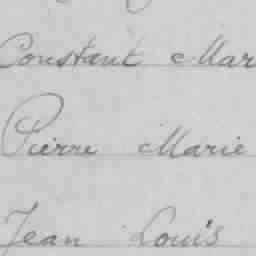 Constant Mar
Pierre Marie
Jean Louis